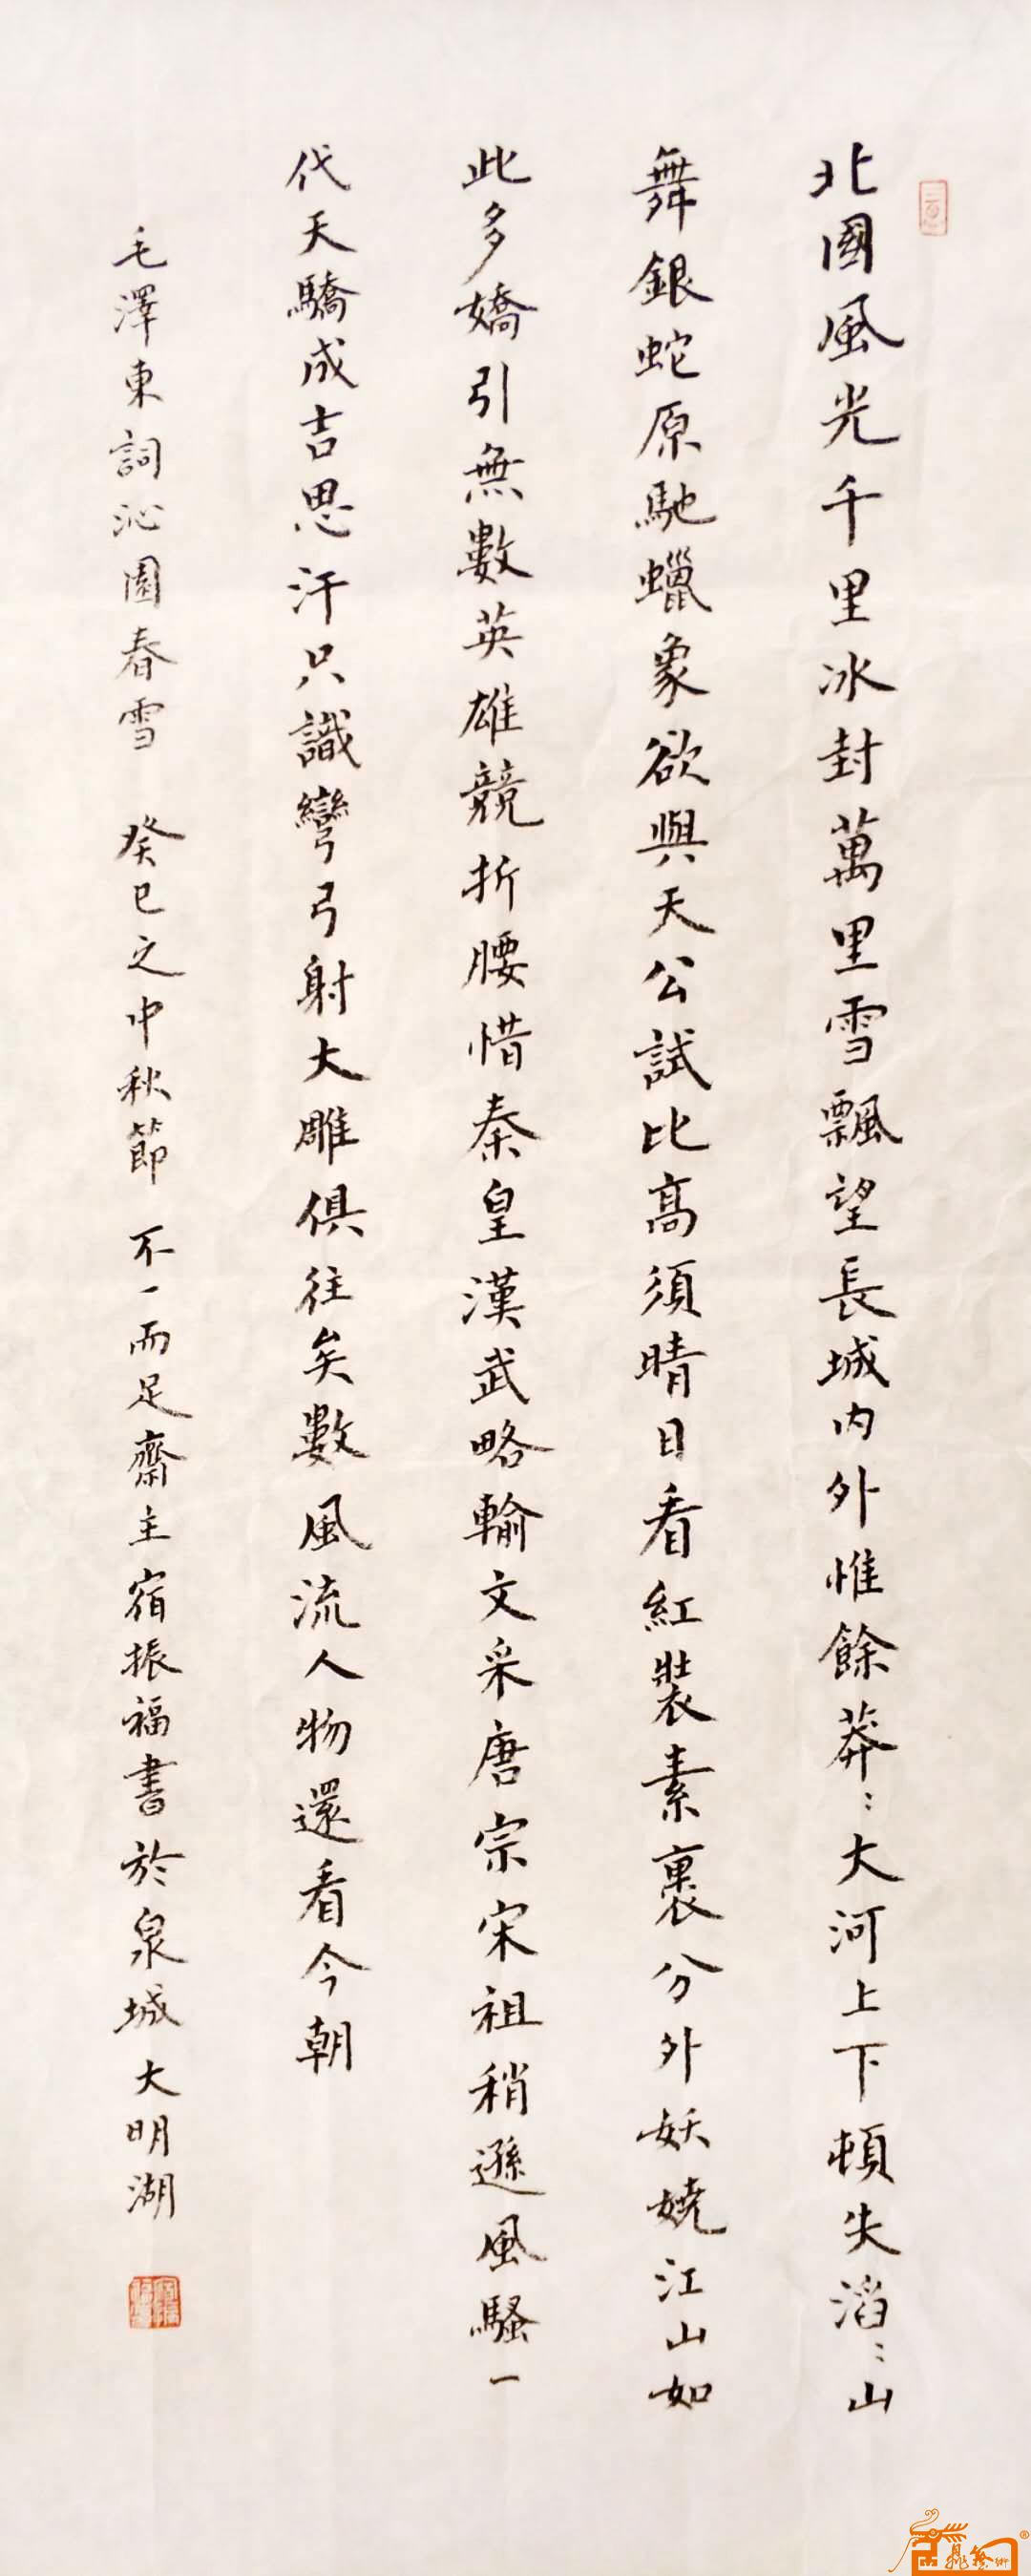 北國風光千里冰封萬里雪飄望長城內外惟餘莽〻大河上下頓失滔〻山
舞銀蛇原馳蠟象欲與天公試比高須晴日看紅裝素裹分外妖嬈江山如
此多嬌引無數英雄競折腰惜秦皇漢武略輸文采唐宗宋祖稍遜風騷一
代天驕成吉思汗只識彎弓射大雕俱往矣數風流人物還看今朝
毛澤東詞沁園春雪 癸巳之中秋節 不一而足齋主宿振福書於泉城大明湖